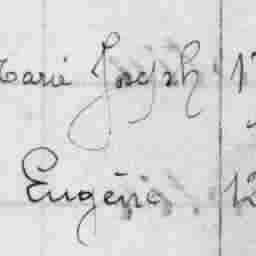 Marie Joseph 1
Eugénie 12